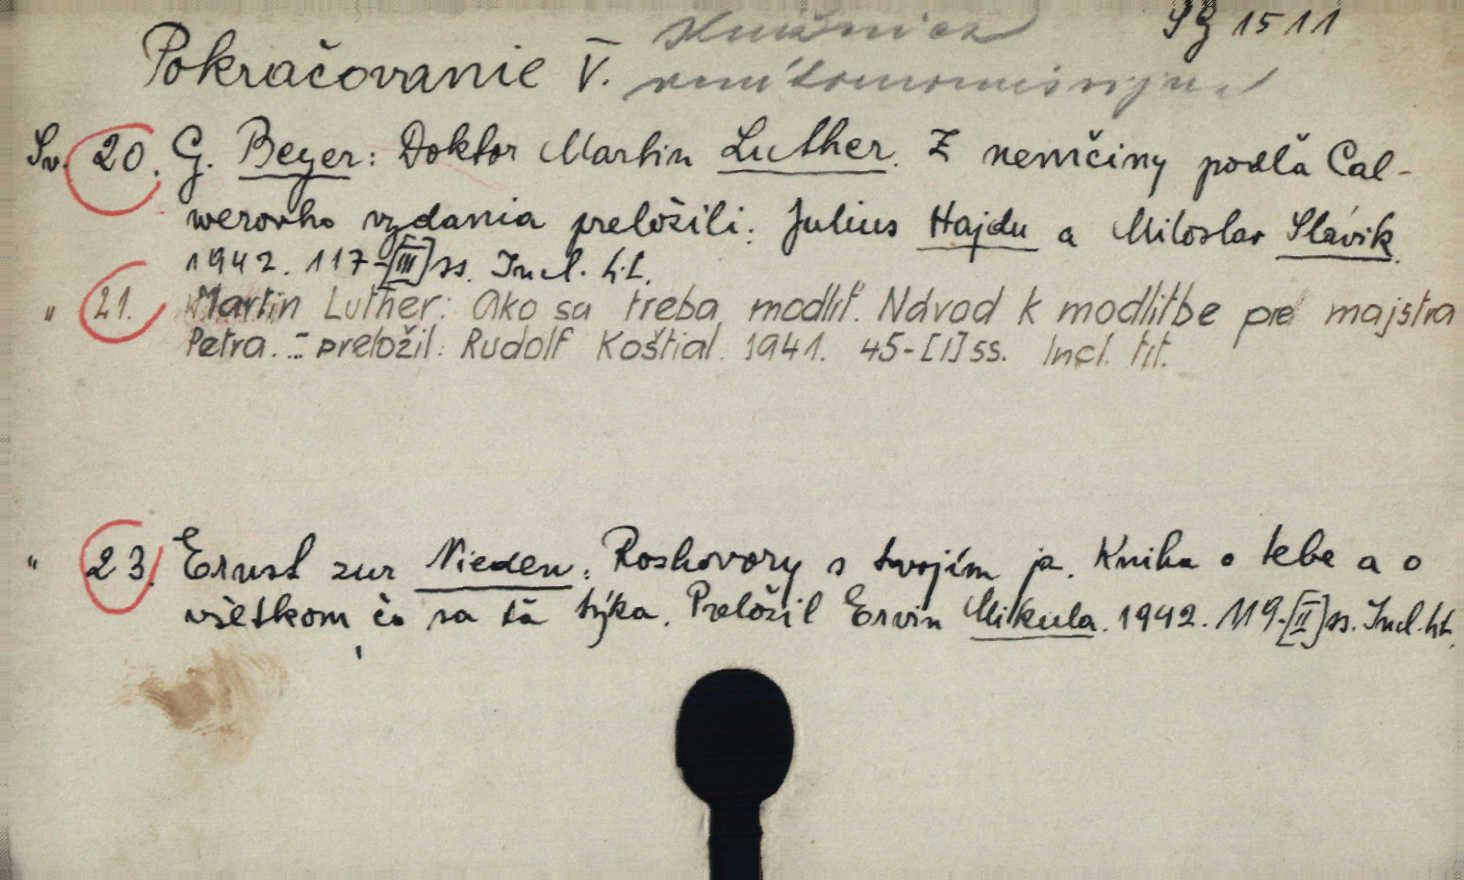 SG 1511
Pokračovanie V.
Sv. 20. G. Beyer: Doktor Martin Luther. Z nemčiny podľa Cal-
werovho vydania preložili: Julius Hajdu a Miloslav Slávik.
1942. 117-[III] ss. Incl. tit.
" 21. Martin Luther: Ako sa treba modliť. Návod k modlitbe pre majstra
Petra. - preložil: Rudolf Koštial. 1941. 45-[I] ss. Incl. tit.
" 23. Ernst zur Nieden: Rozhovory s tvojím ja. Kniha o tebe a o
všetkom, čo sa ťa týka. Preložil Ervin Mikula. 1942. 119-[II] ss. Incl. tit.